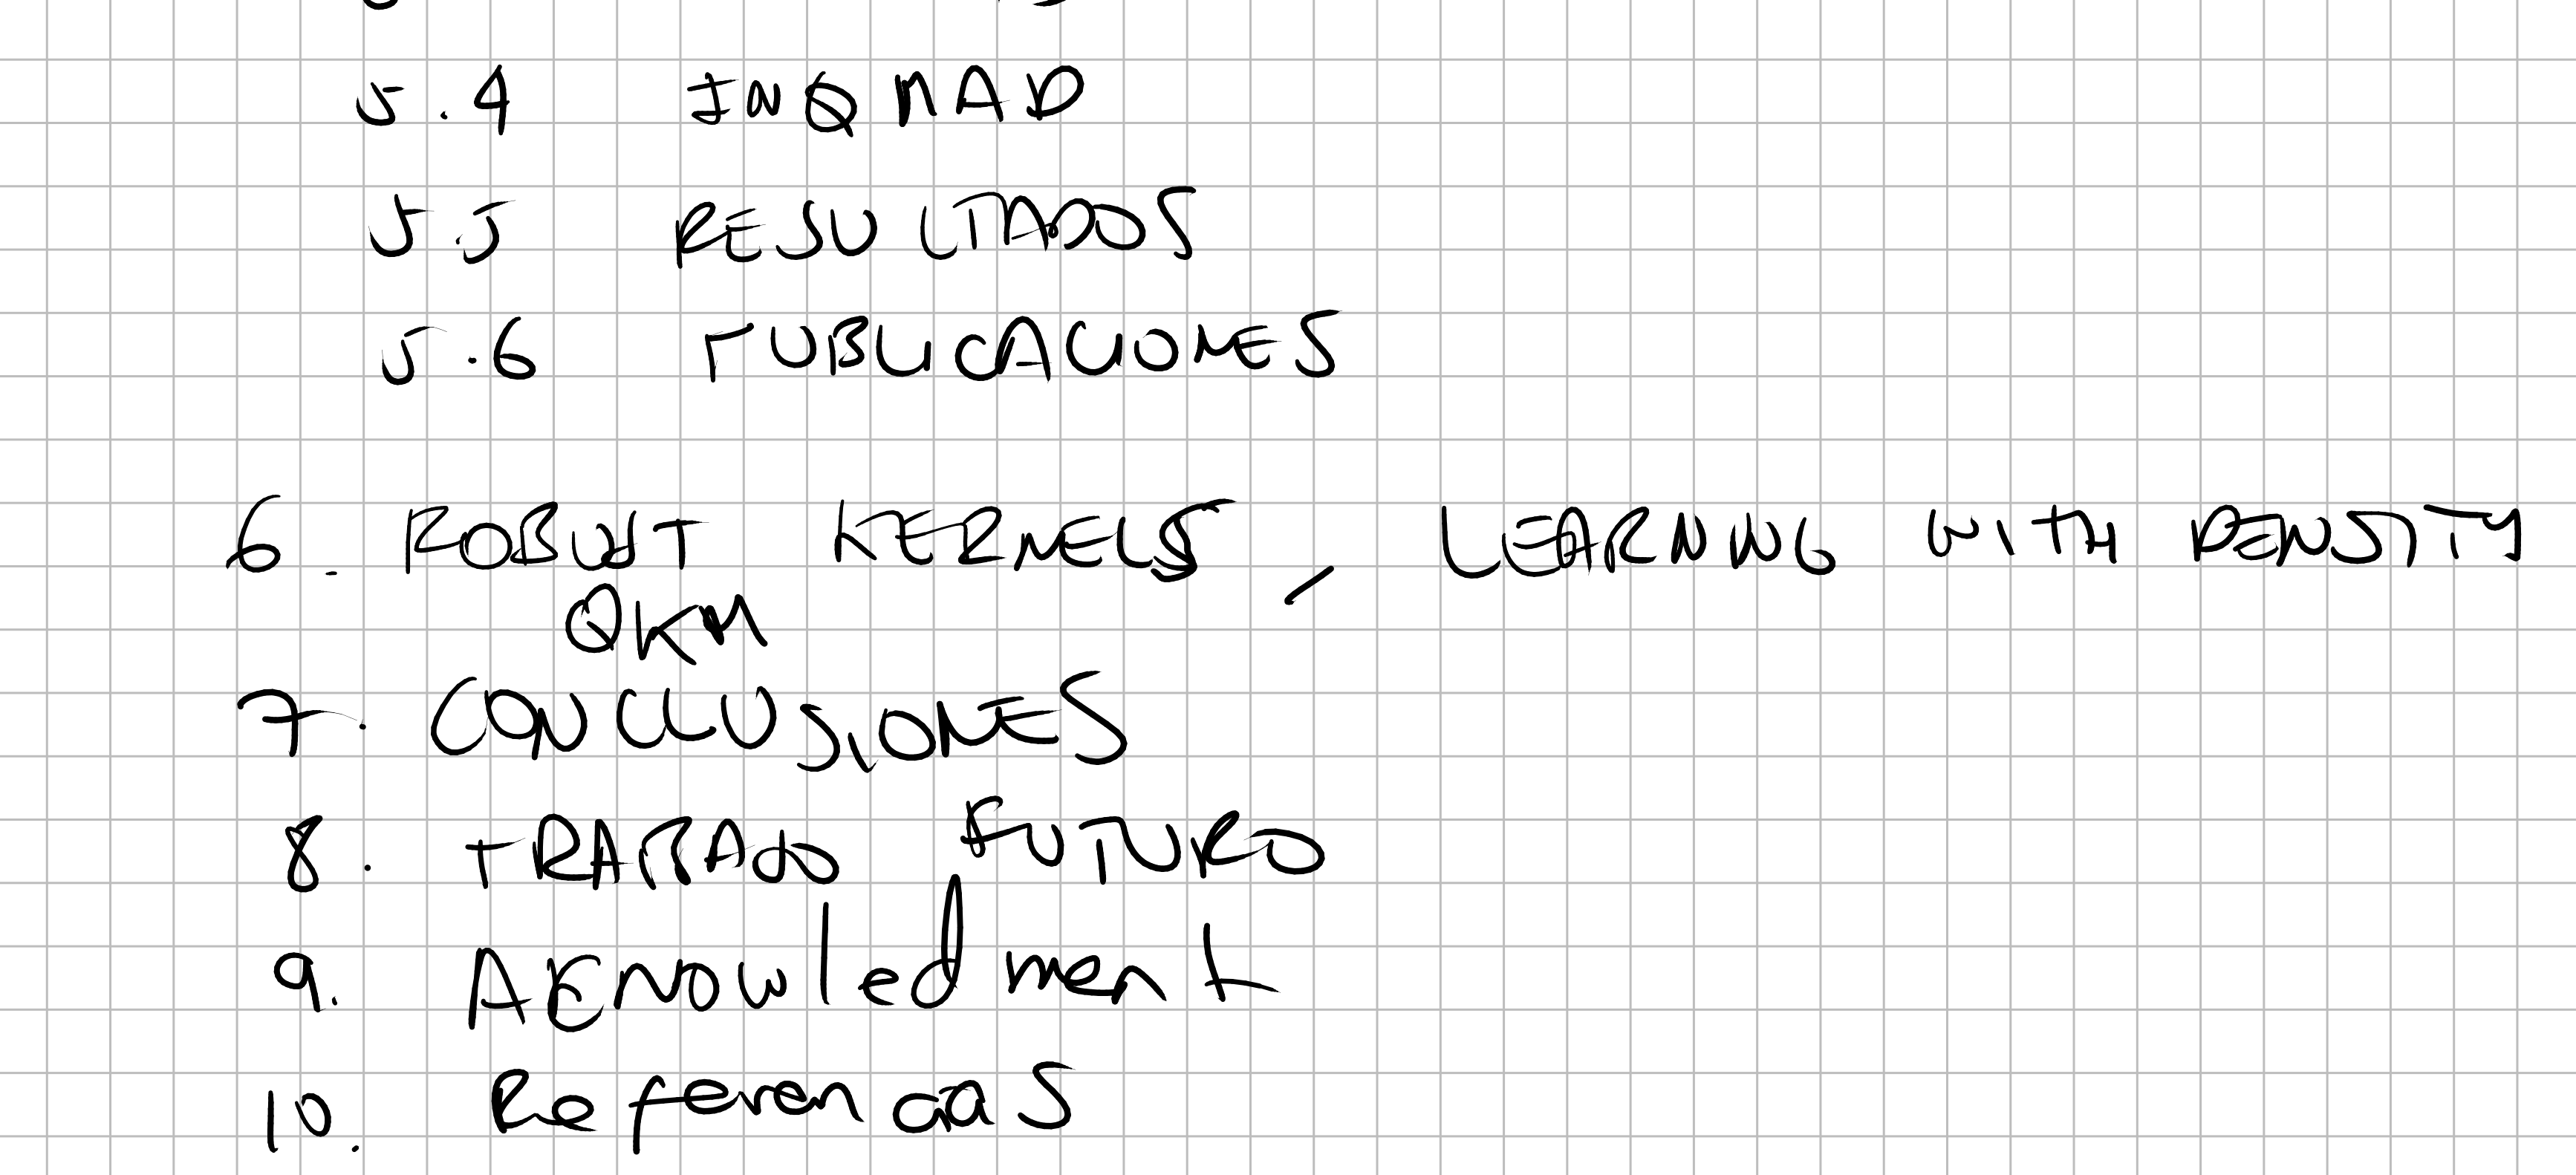 5.4 INQMAD
5.5 RESULTADOS
5.6 PUBLICACIONES
6. ROBUST KERNELS, LEARNING WITH DENSITY
QKM
7. CONCLUSIONES
8. TRABAJO FUTURO
9. AKNOWledment
10. Referencias